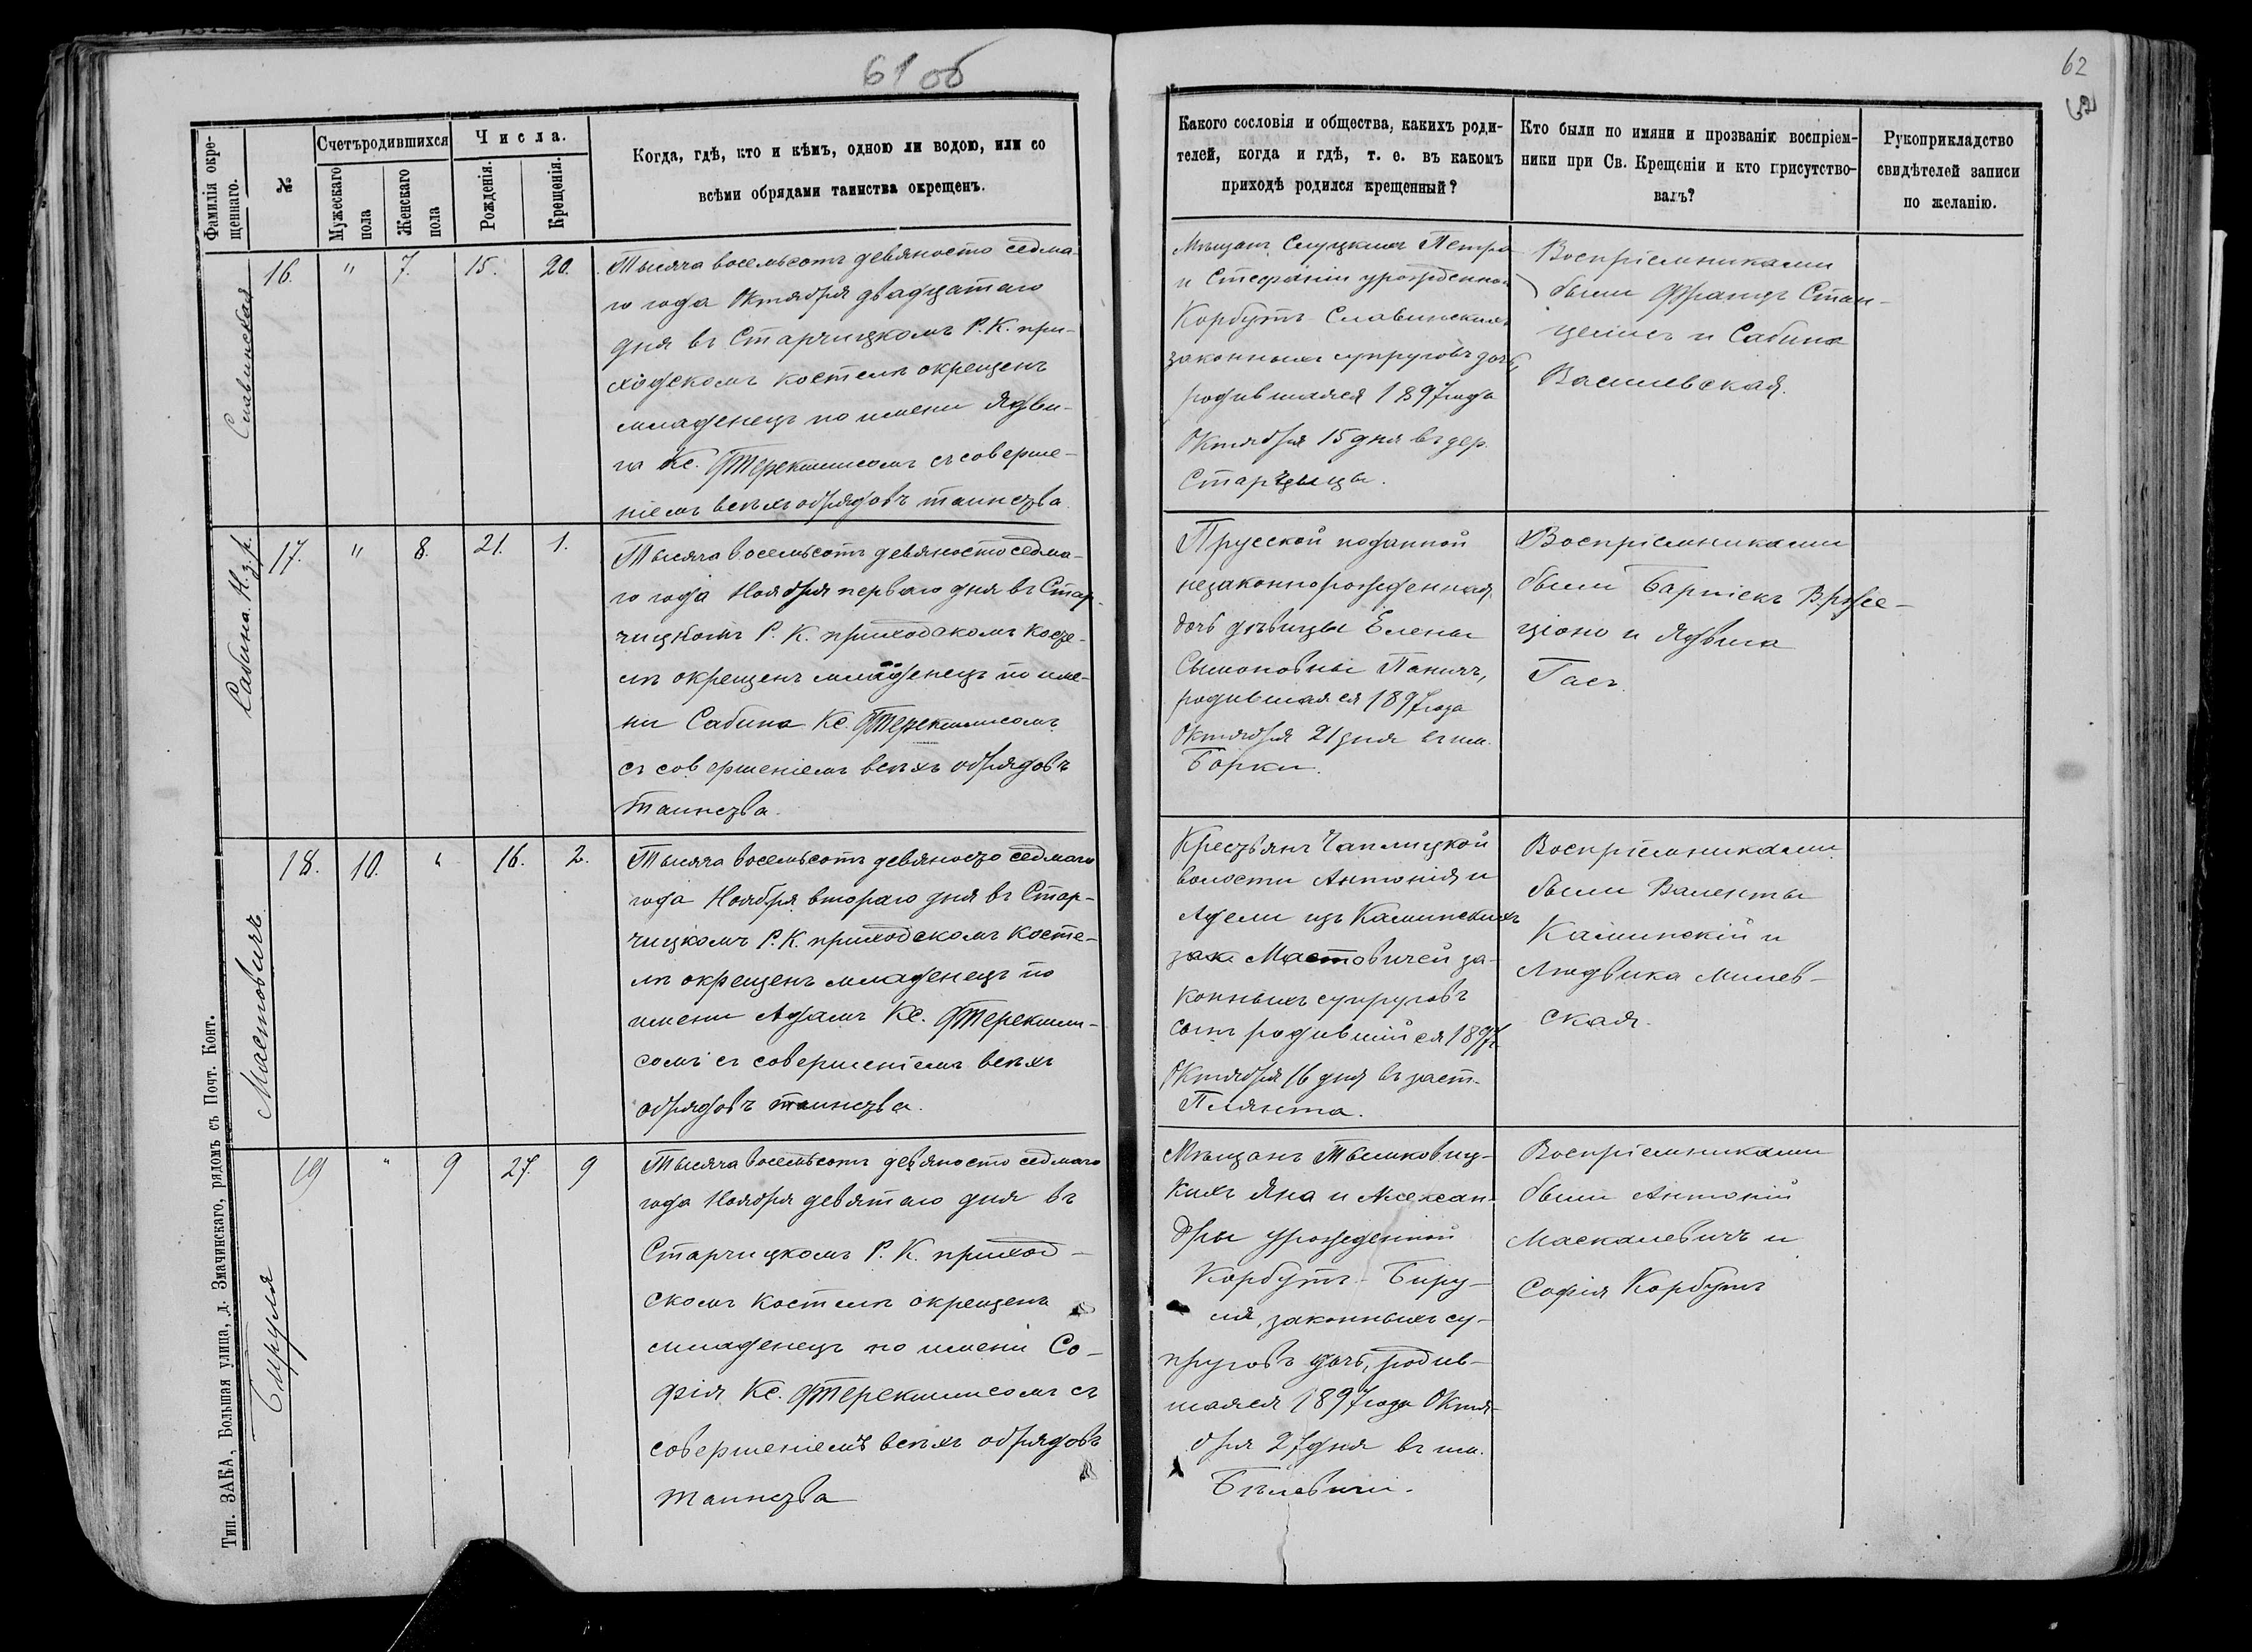 61 об
62
Фамилія окре-
щеннаго.
№
Счетъ родившихся
Мужескаго
пола
Женскаго
пола
Числа.
Рожденія.
Крещенія.
Когда, гдѣ, кто и кѣмъ, одною ли водою, или со
всѣми обрядами таинства окрещенъ.
Какого сословія и общества, какихъ роди-
телей, когда и гдѣ, т. е. въ какомъ
приходѣ родился крещенный?
Кто были по имяни и прозванію воспріем-
ники при Св. Крещеніи и кто присутство-
валъ?
Рукоприкладство
свидѣтелей записи
по желанію.
Славинская
16.
"
7.
15.
20.
Тысяча восемьсотъ девяносто седма-
го года Октября двадцатаго
дня въ Старчицкомъ Р. К. при-
ходскомъ костелѣ окрещенъ
младенецъ по имени Ядви-
га Кс. Фтерекшисомъ съ соверше-
ніемъ всѣхъ обрядовъ таинства.
Мѣщанъ Слуцкихъ Петра
и Стефаніи урожденной
Корбутъ Славинскихъ
законныхъ супруговъ дочь,
родившаяся 1897 года
Октября 15 дня въ дер.
Старчицы.
Воспріемниками
были Францъ Стан-
и Сабина
Василевская.
Сабина Н.з.р.
17.
"
8.
21.
1.
Тысяча восемьсотъ девяносто седма-
го года Ноября перваго дня въ Стар-
чицкомъ Р. К. приходскомъ косте-
лѣ окрещенъ младенецъ по име-
ни Сабина Кс. Фтерекшисомъ
съ совершеніемъ всѣхъ обрядовъ
таинства.
Прусской поданной
незаконнорожденная
дочь дѣвицы Елены
Сымоновны Паничъ,
родившаяся 1897 года
Октября 21 дня въ им.
Борки.
Воспріемниками
были Барпіекъ Врже-
ціоно и Ядвига
Гасъ.
Мастовичъ
18.
10.
"
16.
2.
Тысяча восемьсотъ девяносто седмаго
года Ноября втораго дня въ Стар-
чицкомъ Р. К. приходскомъ косте-
лѣ окрещенъ младенецъ по
имени Адамъ Кс. Фтерекши-
сомъ съ совершеніемъ всѣхъ
обрядовъ таинства.
Крестьянъ Чаплицкой
волости Антонія и
Адели изъ Калинскихъ
зак Мастовичей за-
конныхъ супруговъ
сынъ родившійся 1897 г.
Октября 16 дня въ заст.
Плянта.
Воспріемниками
были Валенты
Калинскій и
Людвика Милев-
ская.
Бируля
19
"
9
27.
9
Тысяча восемьсотъ девяносто седмаго
года Ноября девятаго дня въ
Старчицкомъ Р. К. приход-
скомъ костелѣ окрещенъ
младенецъ по имени Со-
фія Кс. Фтерекшисомъ съ
совершеніемъ всѣхъ обрядовъ
таинства
Мѣщанъ Тымковиц-
кихъ Яна и Алексан-
дры урожденной
Корбутъ Биру-
ля, законныхъ су-
пруговъ дочь, родив-
шаяся 1897 года Октя-
бря 27 дня въ им.
Бѣлевичи.
Воспріемниками
были Антоній
Маскалевичъ и
Софія Корбутъ
Тип. ЗАКА, Большая улица, д. Змачинскаго, рядомъ съ Почт. Конт.